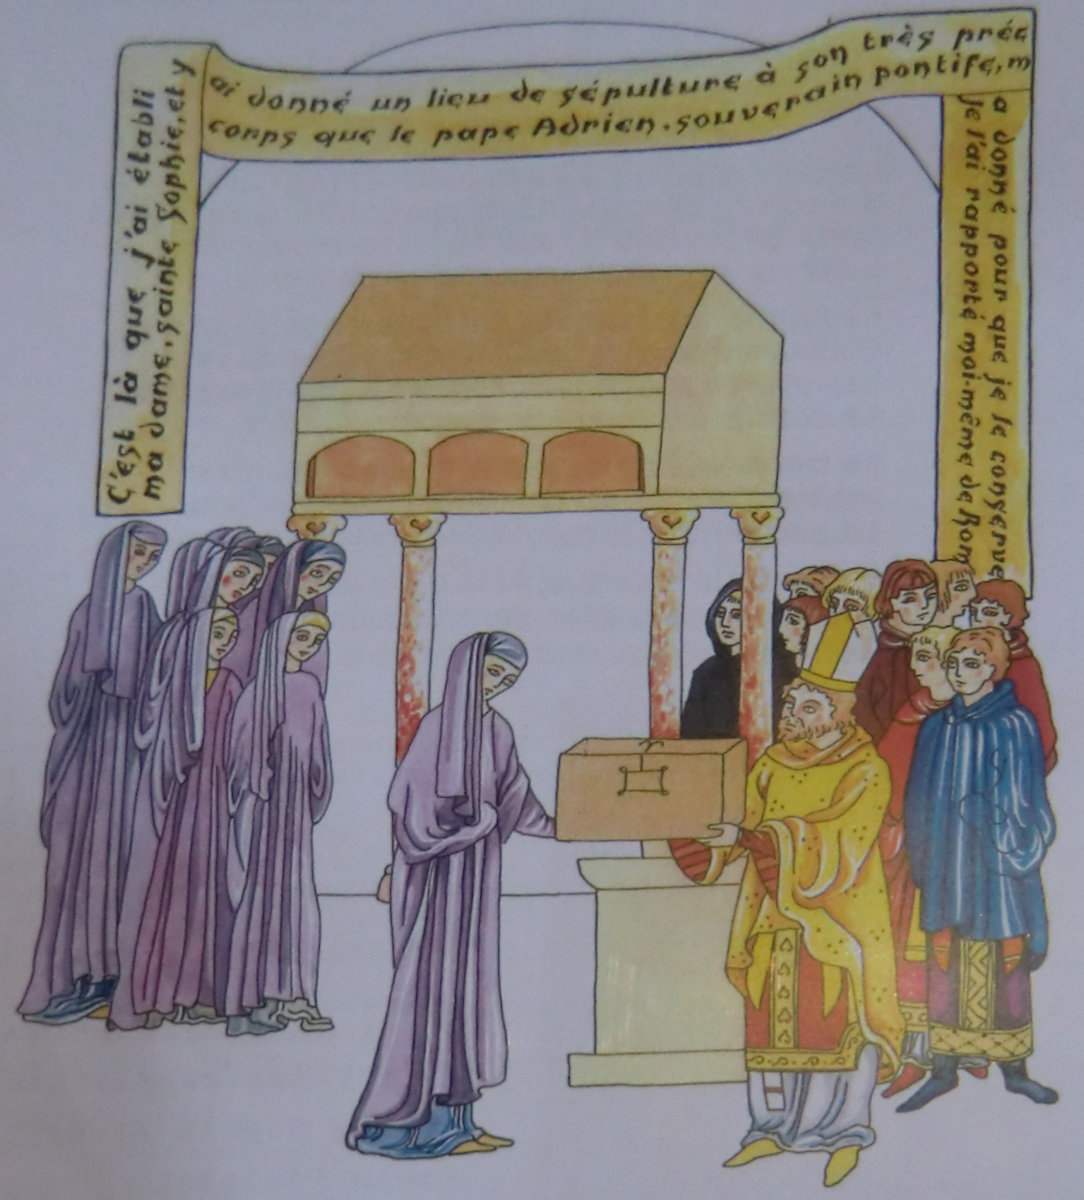 C'est là que j'ai établi
ma dame, sainte Sophie, et y
ai donné un lieu de sépulture à son très préc
corps que le pape Adrien, souverain pontife, m
a donné pour que je le conserve
Je l'ai rapporté moi-même de Rom